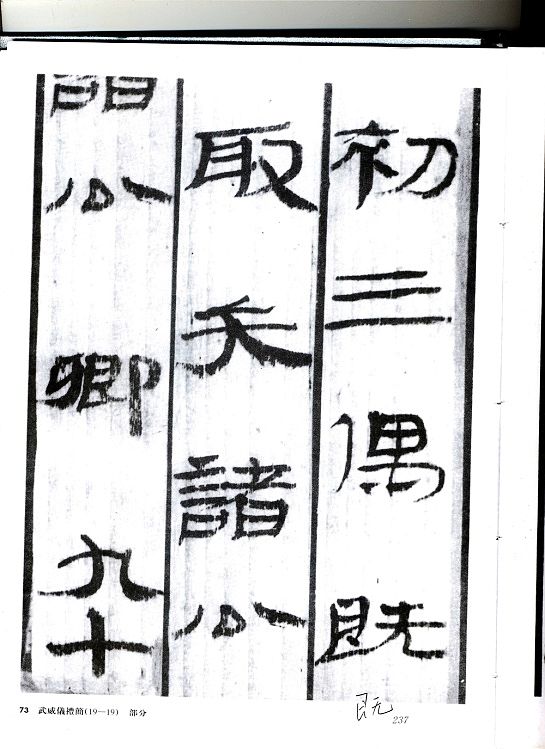 初三偶既
取矢諸公
公卿九十
73 武威儀禮簡(19—19) 部分
既
237